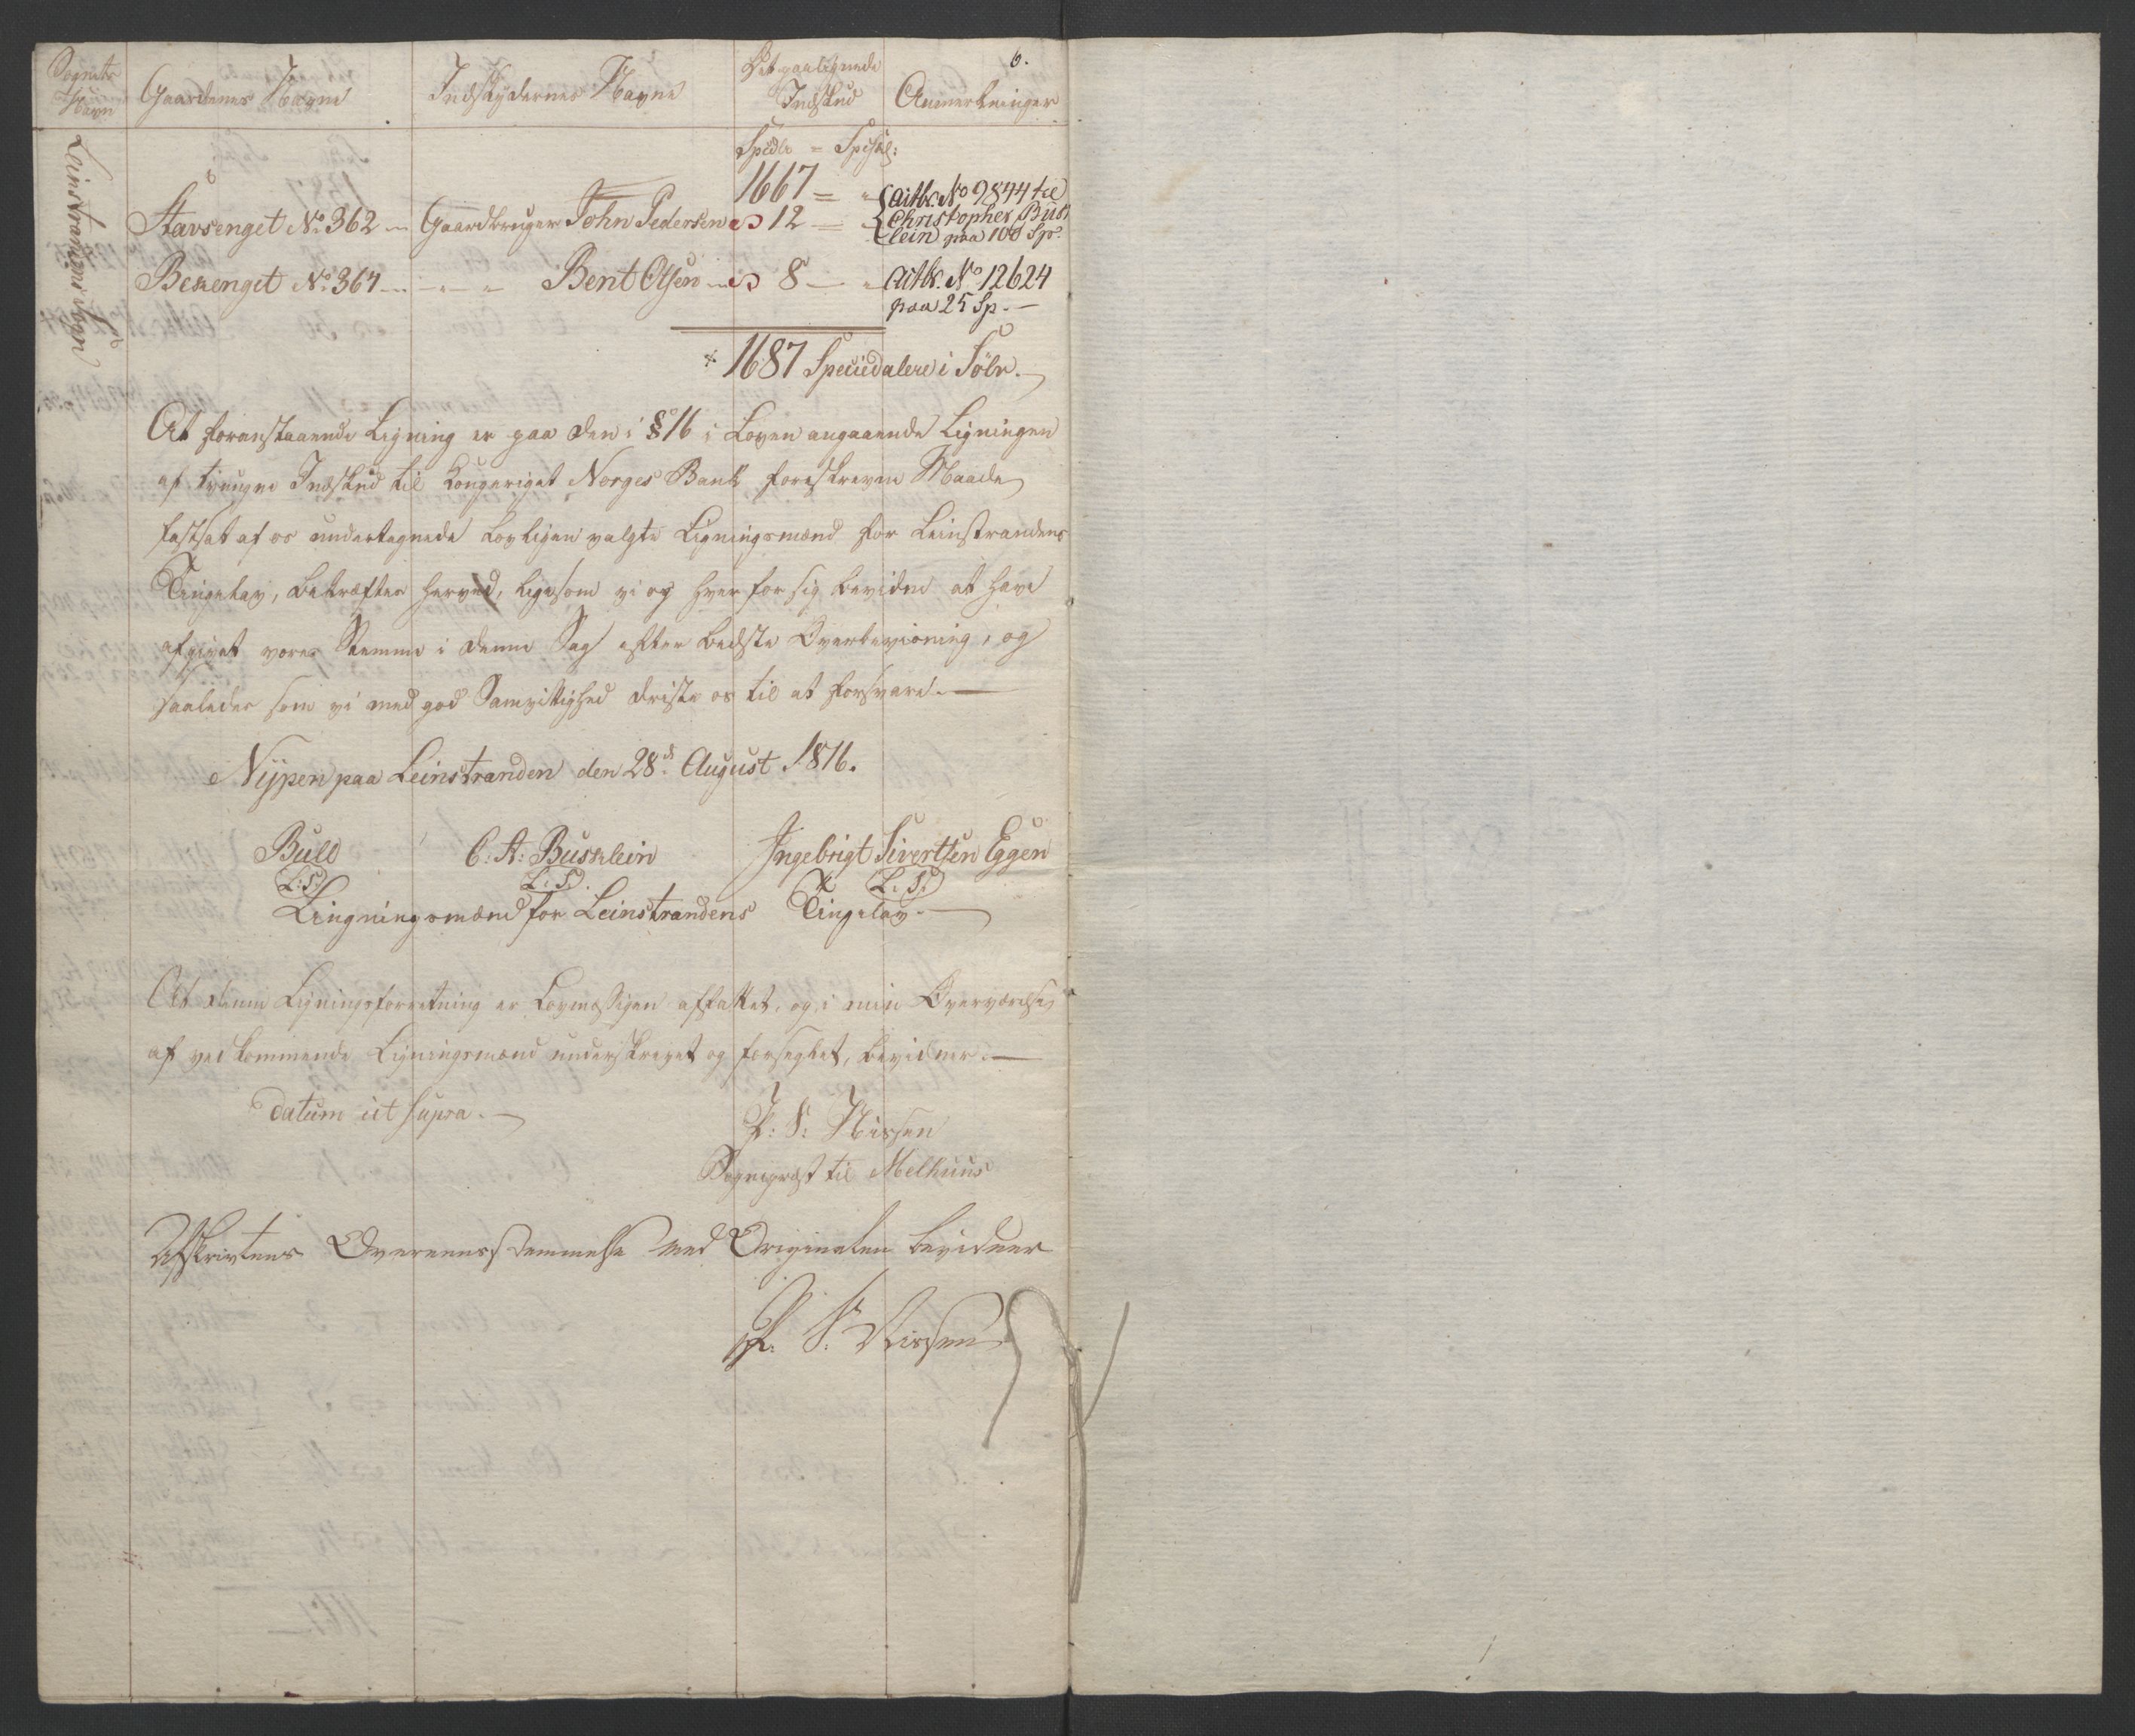 6.
Sognets Navn
Gaardenes Navne
Indskydernes Navne
Det paalignede Indskud
Anmerkninger
Leinstrandens Sogn
Spedlr = Spesk:
1667 = "
Stavsenget No 362 — Gaardbruger John Pedersen 12 — { Actbr. No 9844 til Christopher Busklein paa 100 Sp.
Bekenget No 364 — " — " Bent Olsen 8 — " Actbr. No 12624 paa 25 Sp. —
1687 Speciedalere i Sölv. —
At foranstaaende Ligning er paa den i § 16 i Loven angaaende Ligningen
af tvungne Indskud til Kongeriget Norges Bank foreskrevne Maade
fastsat af os undertegnede Lovligen valgte Ligningsmænd for Leinstrandens
Tingelav, bekræftes herved, ligesom vi og hver for sig bevidne at have
afgivet vores Stemme i denne Sag efter bedste Overbeviisning, og
saaledes som vi med god Samvittighed driste os til at forsvare. —
Nypen paa Leinstranden den 28d August 1816.
Bull C: A: Busklein Ingebrigt Sivertsen Eggen
L:S: L:S: L:S:
Lingningsmænd for Leinstrandens Tingelav. —
At denne Ligningsforretning er Lovmessigen affattet, og i min Overværelse
af vedkommende Ligningsmænd underskrevet og forseglet, bevidner. —
datum ut supra. —
P: S: Nissen
Sogneprest til Melhuus
Afskrivtens Overeensstemmelse med Originalen bevidner
P: S: Nissen